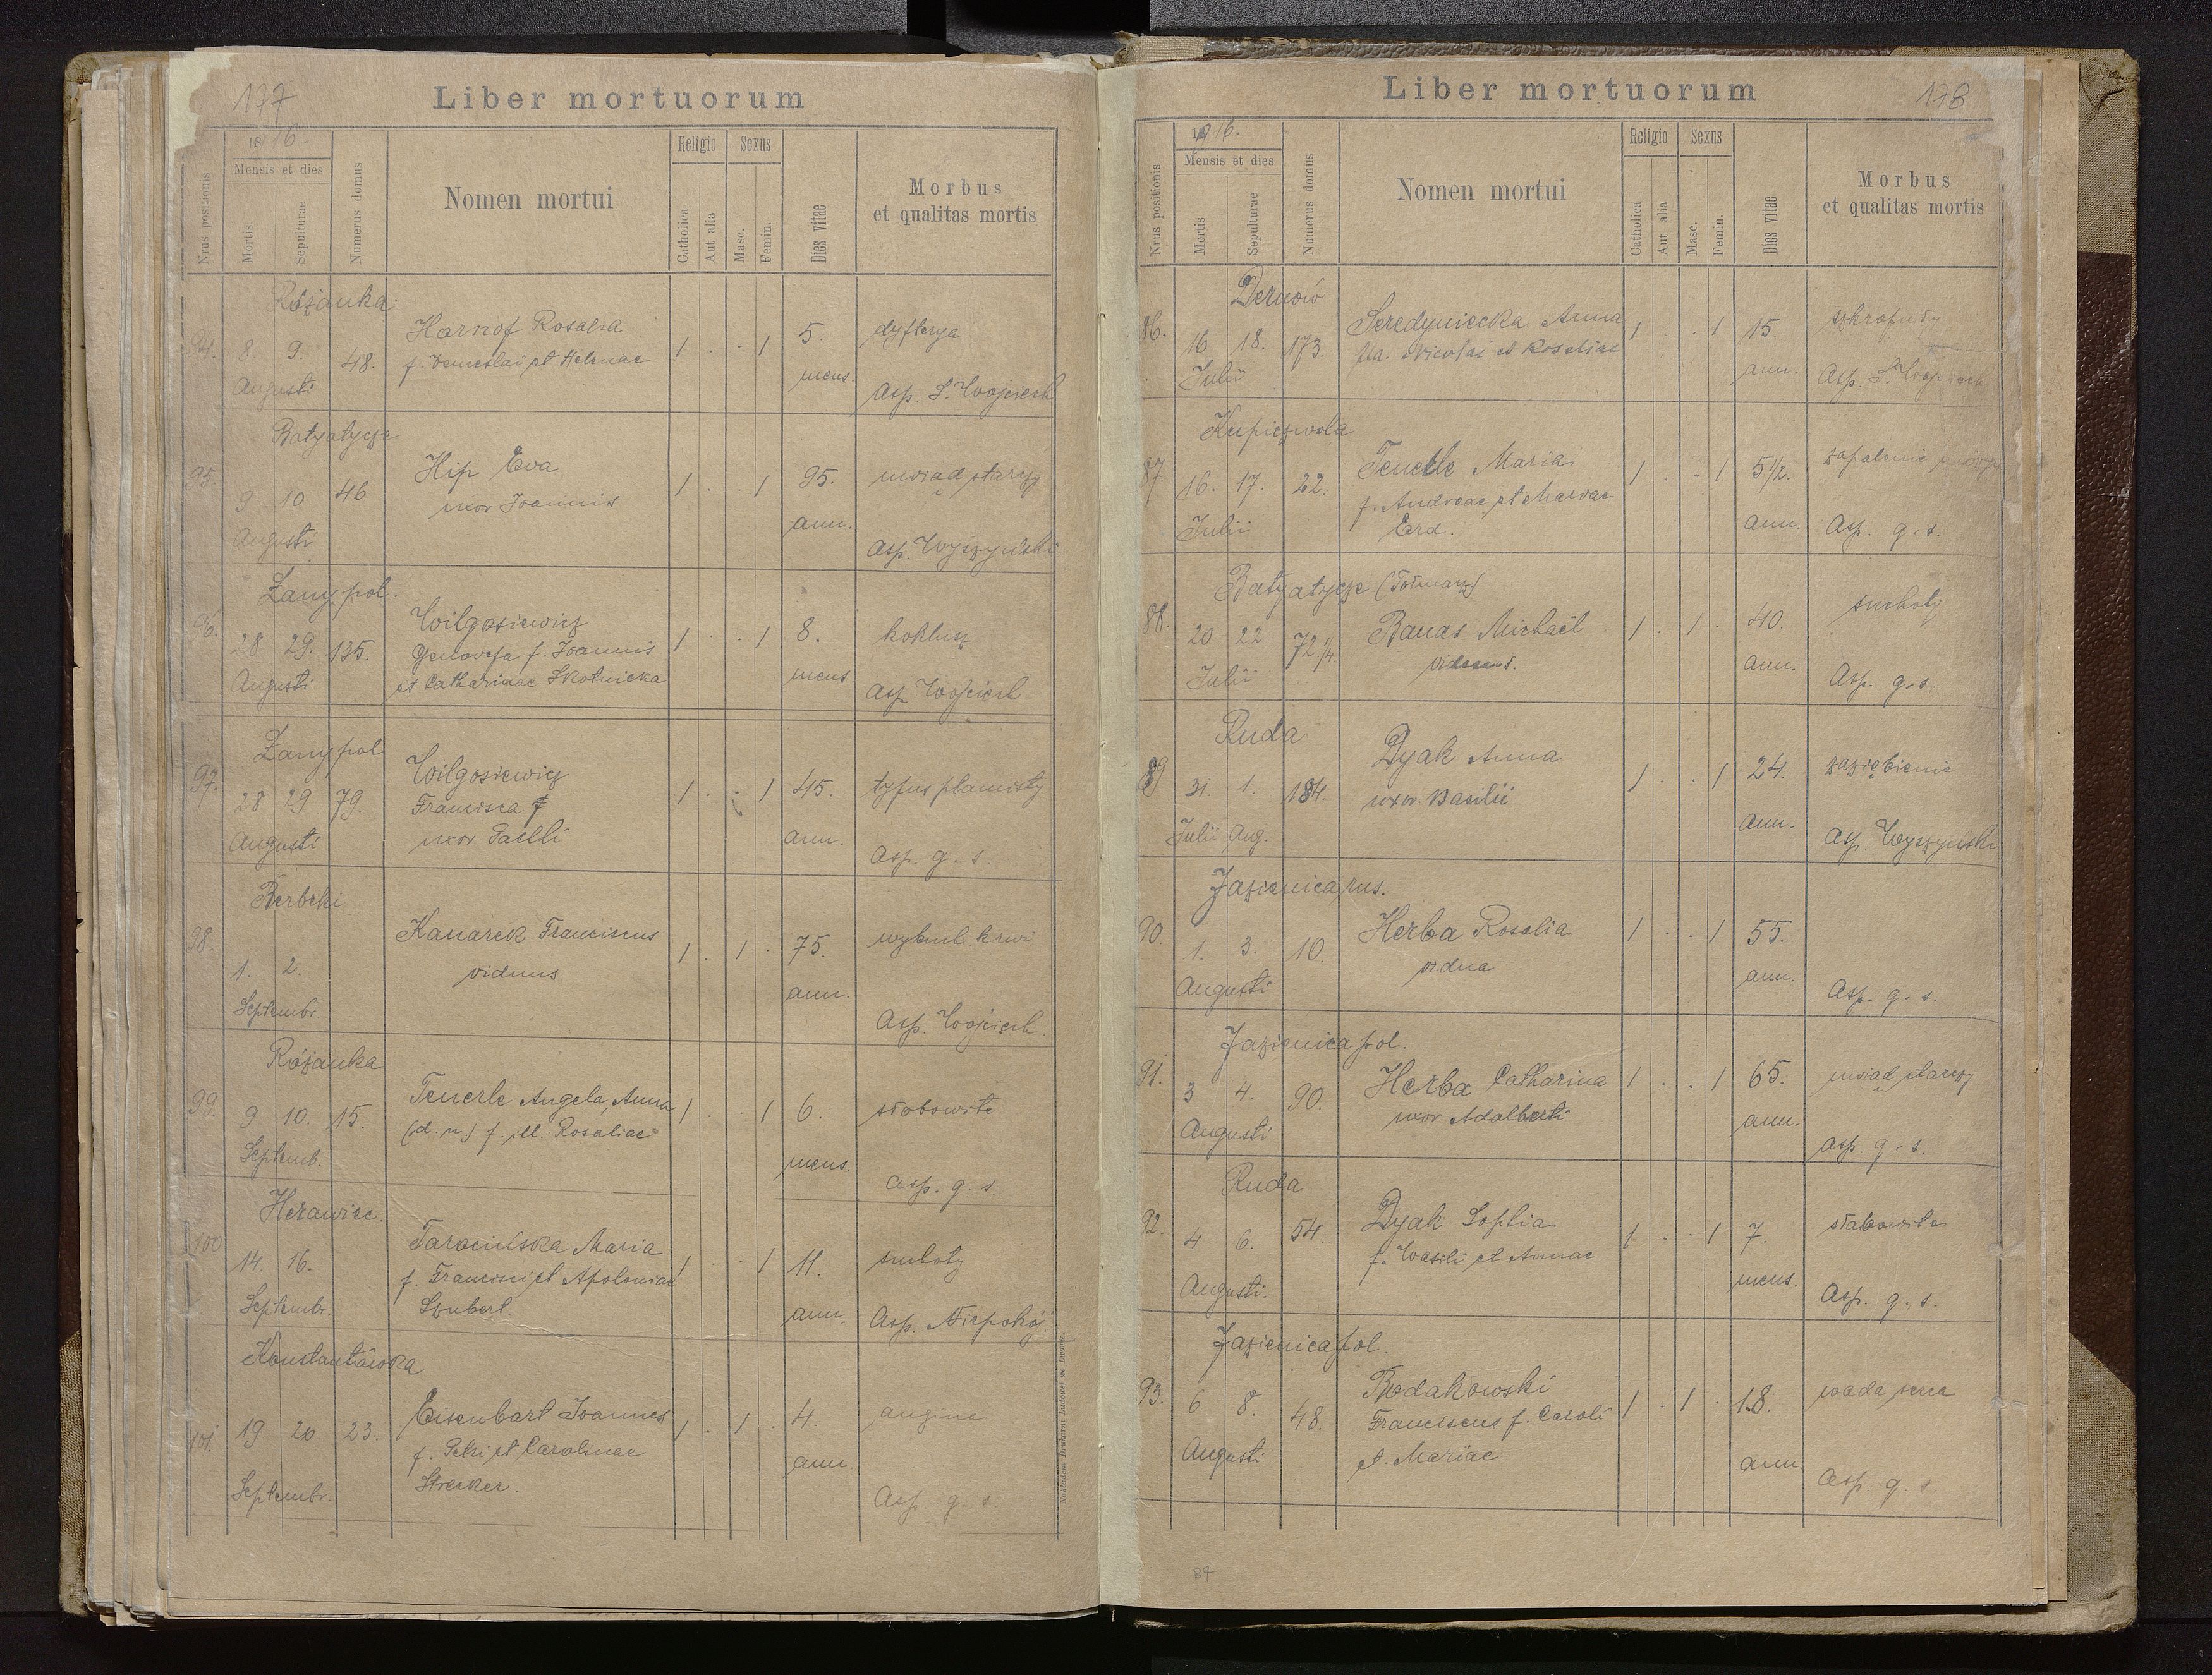 177
Liber mortuorum
1816.
Nrus positionis
Mensis et dies
Mortis
Sepulturae
Numerus domus
Nomen mortui
Religio
Catholica
Aut alia
Sexus
Masc.
Femin.
Dies vitae
Morbus
et qualitas mortis
Różanka
94. 8. 9. 48. Harnof Rosalia 1 . . 1 5. dyfterya
f. et Helenae
Augusti mens. Asp. S. Wojciech
Batyatycze
95. 9 10 46 Hip Eva 1 . . 1 95. uwiąd starczy
uxor Joannis
Augusti ann. Asp. Wyszyński
Zany pol.
96. 28 29. 135. Wilgosiewicz 1 . . 1 8. koklusz
Genovefa f. Joannis
Augusti et Catharinae Skotnicka mens. Asp Wojciech
Zany pol
97. 28 29 79. Wilgosiewicz 1 . . 1 45. tyfus plamisty
Francisca
Augusti uxor ann. Asp. g. s.
Berbeki
98. 1. 2. Kanarek Franciscus 1 . 1 . 75. wybuch krwi
viduus
Septembr. ann. Asp. Wojciech
Różanka
99. 9 10. 15. Tenerle Angela, Anna 1 . . 1 6. słabowite
(d. n.) f. ill. Rosaliae
Septemb. mens. asp. g. s.
Herawiec.
100 14. 16. Tarocińska Maria 1 . . 1 11. suchoty
f. Francisci et Apoloniae
Septembr. ann. Asp. Niepokój
Konstantówka
101. 19 20 23. Eisenbart Joannes 1 . 1 . 4. angina
f. Petri et Carolinae
Septembr. Strecker. ann. Asp g. s
178
Liber mortuorum
1916.
Nrus positionis
Mensis et dies
Mortis
Sepulturae
Numerus domus
Nomen mortui
Religio
Catholica
Aut alia
Sexus
Masc.
Femin.
Dies vitae
Morbus
et qualitas mortis
Dernów
86. 16 18. 173. Seredyniecka Anna 1 . . 1 15. szkrofuły
fla. Nicolai et Rosaliae
Julii ann. Asp. S. Wojciech
Kupiczwola
87. 16. 17. 22. Tenerle Maria 1 . . 1 5 1/2. zapalenie
f. Andreae et Mariae
Julii Erd. ann. Asp. g. s.
Batyatycze
88. 20 22 72 1/4 Banas Michaël 1 . 1 . 40. suchoty
viduus.
Julii ann. Asp. g. s.
Ruda
89 31. 1. 184. Dyak Anna 1 . . 1 24. zaziębienie
uxor. Basilii
Julii Aug. ann. Asp. Wyszyński
Jazienica rus.
90. 1. 3. 10. Herba Rosalia 1 . . 1 55.
vidua
Augusti ann. Asp. g. s.
Jazienica pol.
91. 3 4. 90. Herba Catharina 1 . . 1 65. uwiąd starczy
uxor Adalberti
Augusti ann. asp. g. s.
Ruda
92. 4 6. 54. Dyak Sophia 1 . . 1 7. słabowite
f. Wasili et Annae
Augusti. mens. Asp. g. s.
Jazienica pol.
93. 6 8. 48. Bodakowski 1 . 1 . 18. wada serca
Franciscus f. Caroli
Augusti et. Mariae ann Asp. g. s.
87